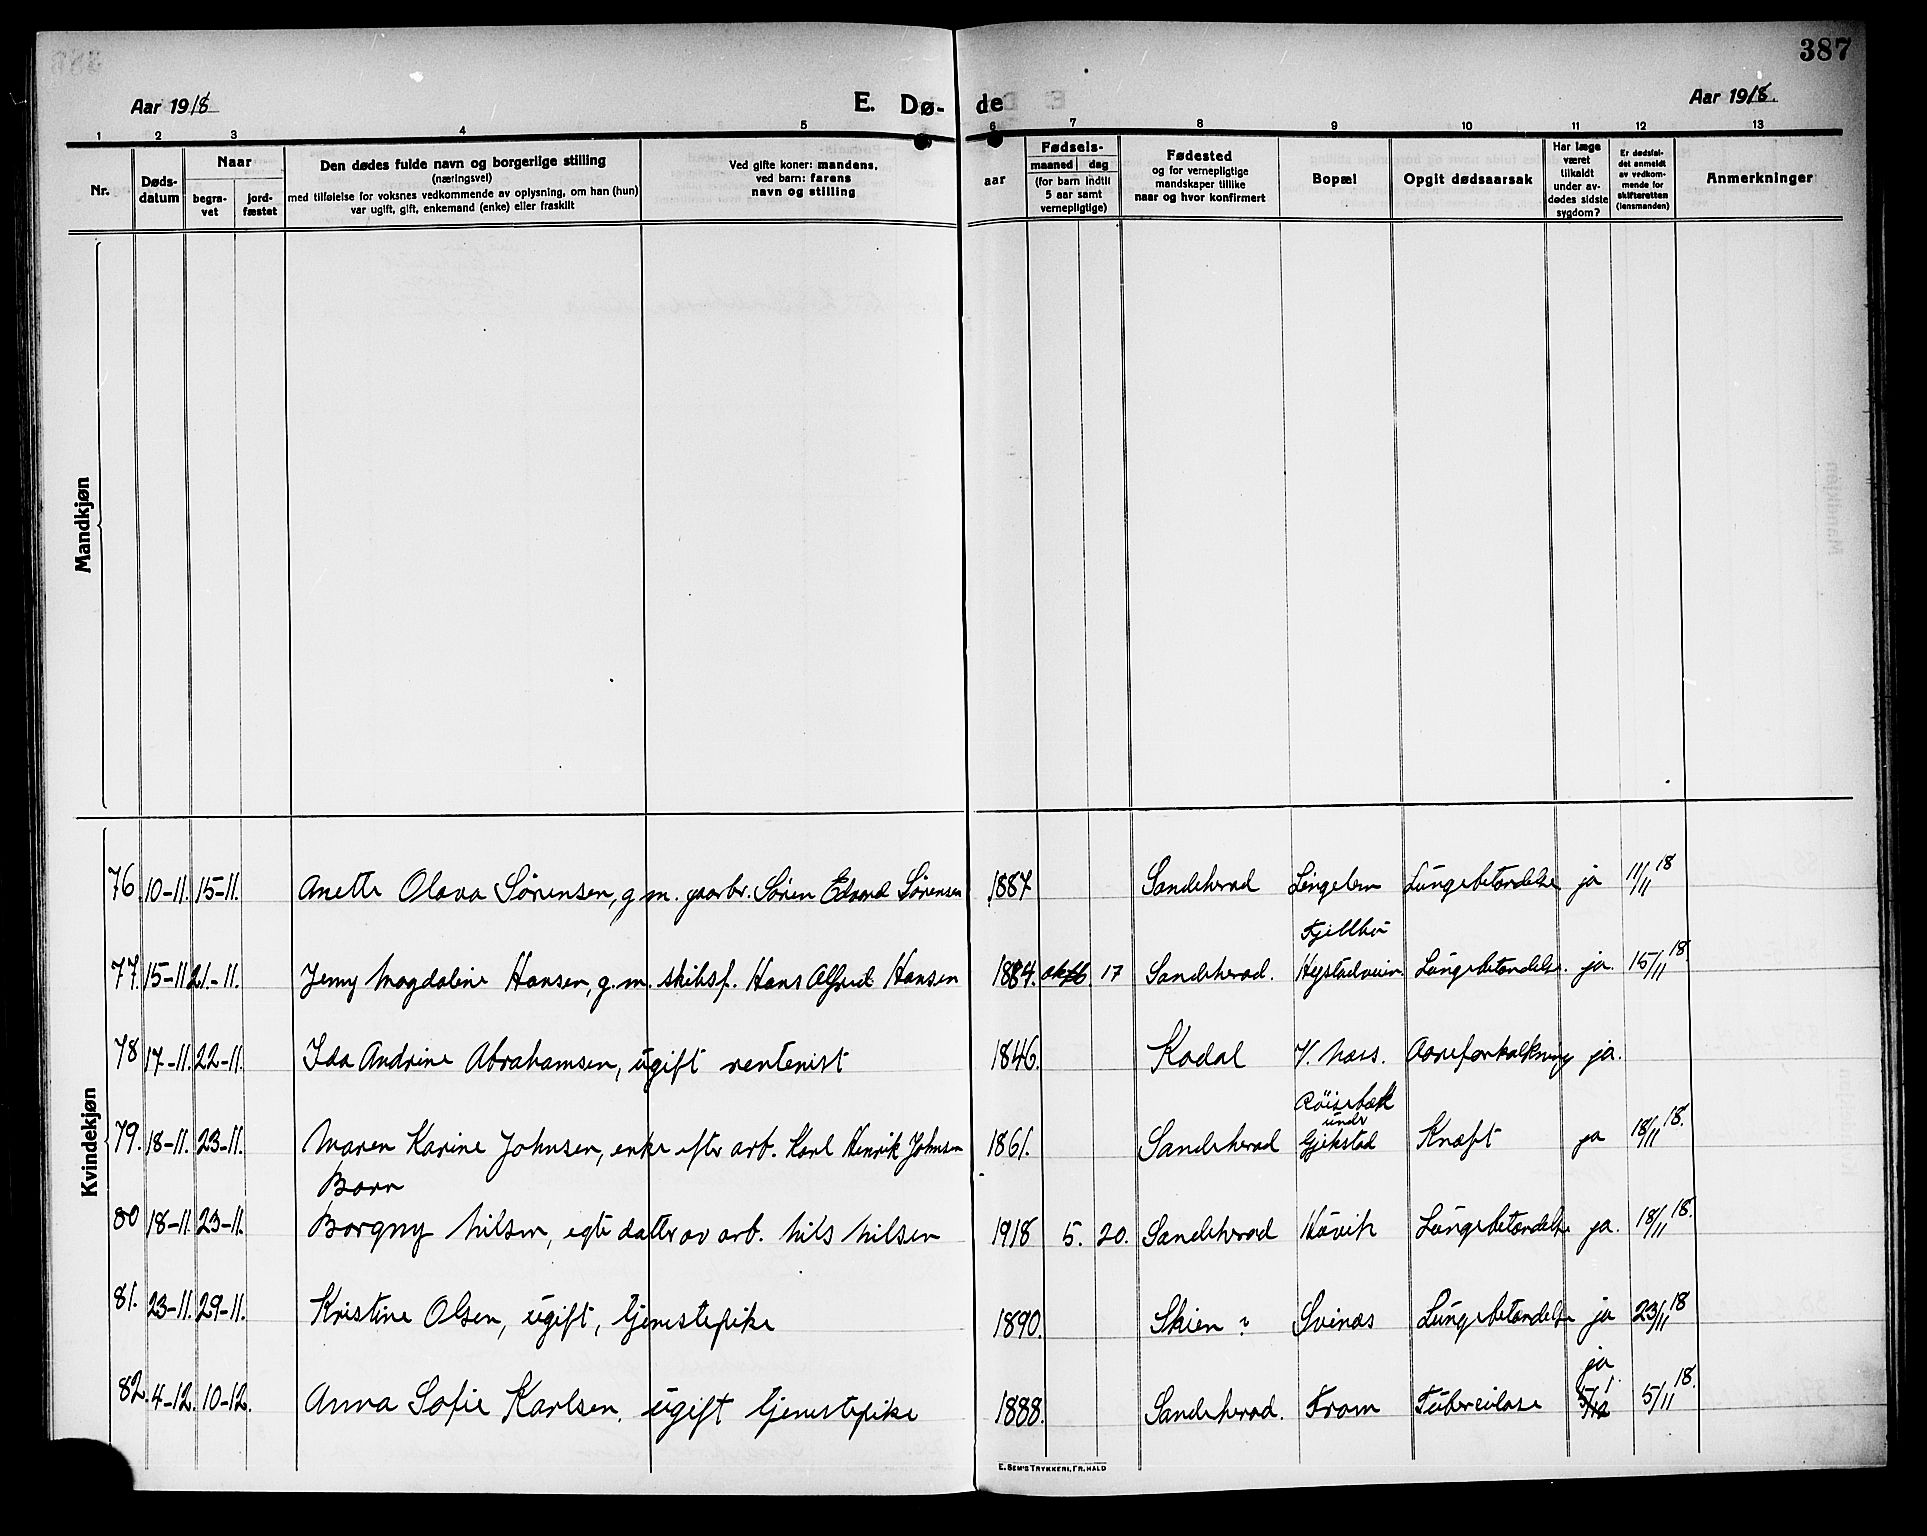 387
Aar 1918
E. Dø-
de
Aar 1918.
1 2 3 4 5 6 7 8 9 10 11 12 13
Nr.
Døds-
datum
Naar
begra-
vet
jord-
fæstet
Den dødes fulde navn og borgerlige stilling
(næringsvei)
med tilføielse for voksnes vedkommende av oplysning, om han (hun)
var ugift, gift, enkemand (enke) eller fraskilt
Ved gifte koner: mandens,
ved barn: farens
navn og stilling
aar
Fødsels-
maaned dag
(for barn indtil
5 aar samt
vernepligtige)
Fødested
og for vernepligtige
mandskaper tillike
naar og hvor konfirmert
Bopæl
Opgit dødsaarsak
Har læge
været
tilkaldt
under av-
dødes sidste
sygdom?
Er dødsfal-
det anmeldt
av vedkom-
mende for
skifteretten
(lensmanden)
Anmerkninger
Mandkjøn
Kvindekjøn
76 10-11. 15-11. Anette Olava Sørensen, g. m. gaarbr. Søren Edvard Sørensen 1887 Sandeherad Lingelem Lungebetændelse ja 11/11 18
Fjellbu
77. 15-11 21-11. Jenny Magdaline Hansen, g. m. skibsf. Hans Alfred Hansen 1884. oktb. 17 Sandeherad. Hystadveien. Lungebetændelse. ja. 15/11 18
78 17-11. 22-11. Ida Andrine Abrahamsen, ugift rentenist 1846. Kodal V. Næss. Aareforkalkning ja.
Røisebæk
under
79. 18-11. 23-11. Maren Karine Johnsen, enke efter arb. Karl Henrik Johnsen 1861. Sandeherad Gjekstad Kræft ja 18/11 18.
Barn
80 18-11. 23-11. Borgny Nilsen, egte datter av arb. Nils Nilsen 1918 5. 20. Sandeherad Haavik Lungebetændelse ja. 18/11 18.
81. 23-11. 29-11. Kristine Olsen, ugift, tjenestepike 1890. Skien ? Svinæs Lungebetændelse ja 23/11 18
ja
82. 4-12. 10-12. Anna Sofie Karlsen, ugift tjenestepike 1888. Sandeherad. Fram Tuberculose 5/12 5/11 18.
E. SEM'S TRYKKERI, FR.HALD